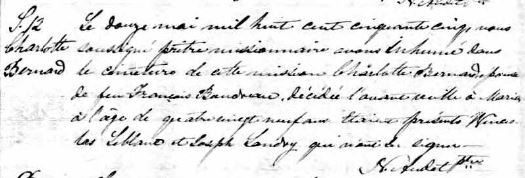 S. 12
Charlotte
Bernard
Le douze mai mil huit cent cinquante cinq nous
soussigné prêtre missionnaire avons inhumé dans
le cimetière de cette mission Charlotte Bernard épouse
de feu François Boudreau, décédée l'avant veille à Maria
à l'âge de quatre vingt neuf ans étaient présents Wences
las Leblanc et Joseph Landry qui n'ont su signer
N. Audet ptre